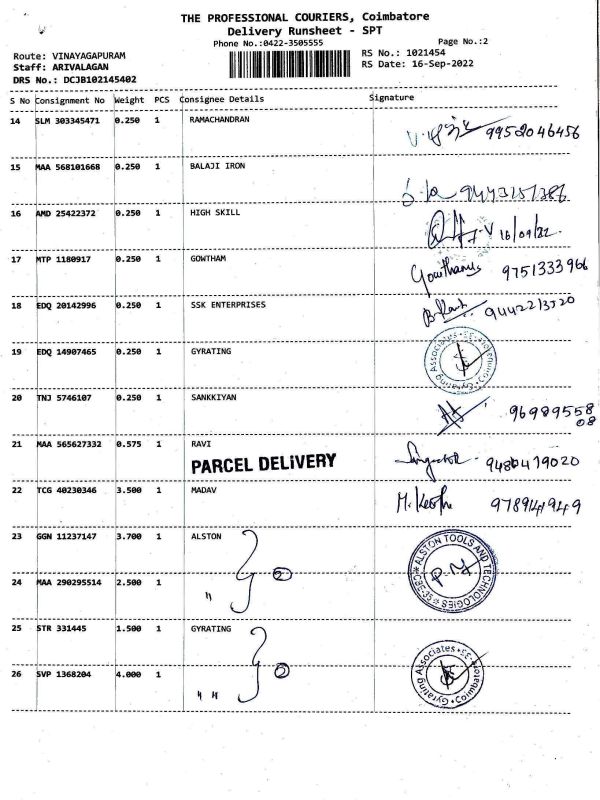 THE PROFESSIONAL COURIERS, Coimbatore
Delivery Runsheet - SPT
Phone No.:0422-3505555
Page No.:2
Route: VINAYAGAPURAM
RS No.: 1021454
Staff: ARIVALAGAN
RS Date: 16-Sep-2022
DRS No.: DCJB102145402
S No Consignment No Weight PCS Consignee Details Signature
14 SLM 303345471 0.250 1 RAMACHANDRAN
9952046456
15 MAA 568101668 0.250 1 BALAJI IRON
16 AMD 25422372 0.250 1 HIGH SKILL
16/09/22
17 MTP 1180917 0.250 1 GOWTHAM
Gowtham 9751333966
18 EDQ 20142996 0.250 1 SSK ENTERPRISES
19 EDQ 14907465 0.250 1 GYRATING
Gyrating Associates
20 TNJ 5746107 0.250 1 SANKKIYAN
9698955808
21 MAA 565627332 0.575 1 RAVI
PARCEL DELIVERY
9486479020
22 TCG 40230346 3.500 1 MADAV
23 GGN 11237147 3.700 1 ALSTON
2
ALSTON TOOLS AND TECHNOLOGIES
CBE-35
24 MAA 290295514 2.500 1 "
25 STR 331445 1.500 1 GYRATING
2
Gyrating Associates
Coimbatore
26 SVP 1368204 4.000 1 " "